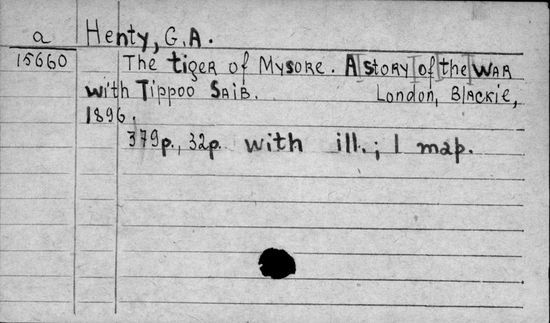 a Henty, G.A.
15660 The tiger of Mysore. A story of the war
with Tippoo Saib. London, Blackie,
1896.
379p., 32p. with ill.; 1 map.